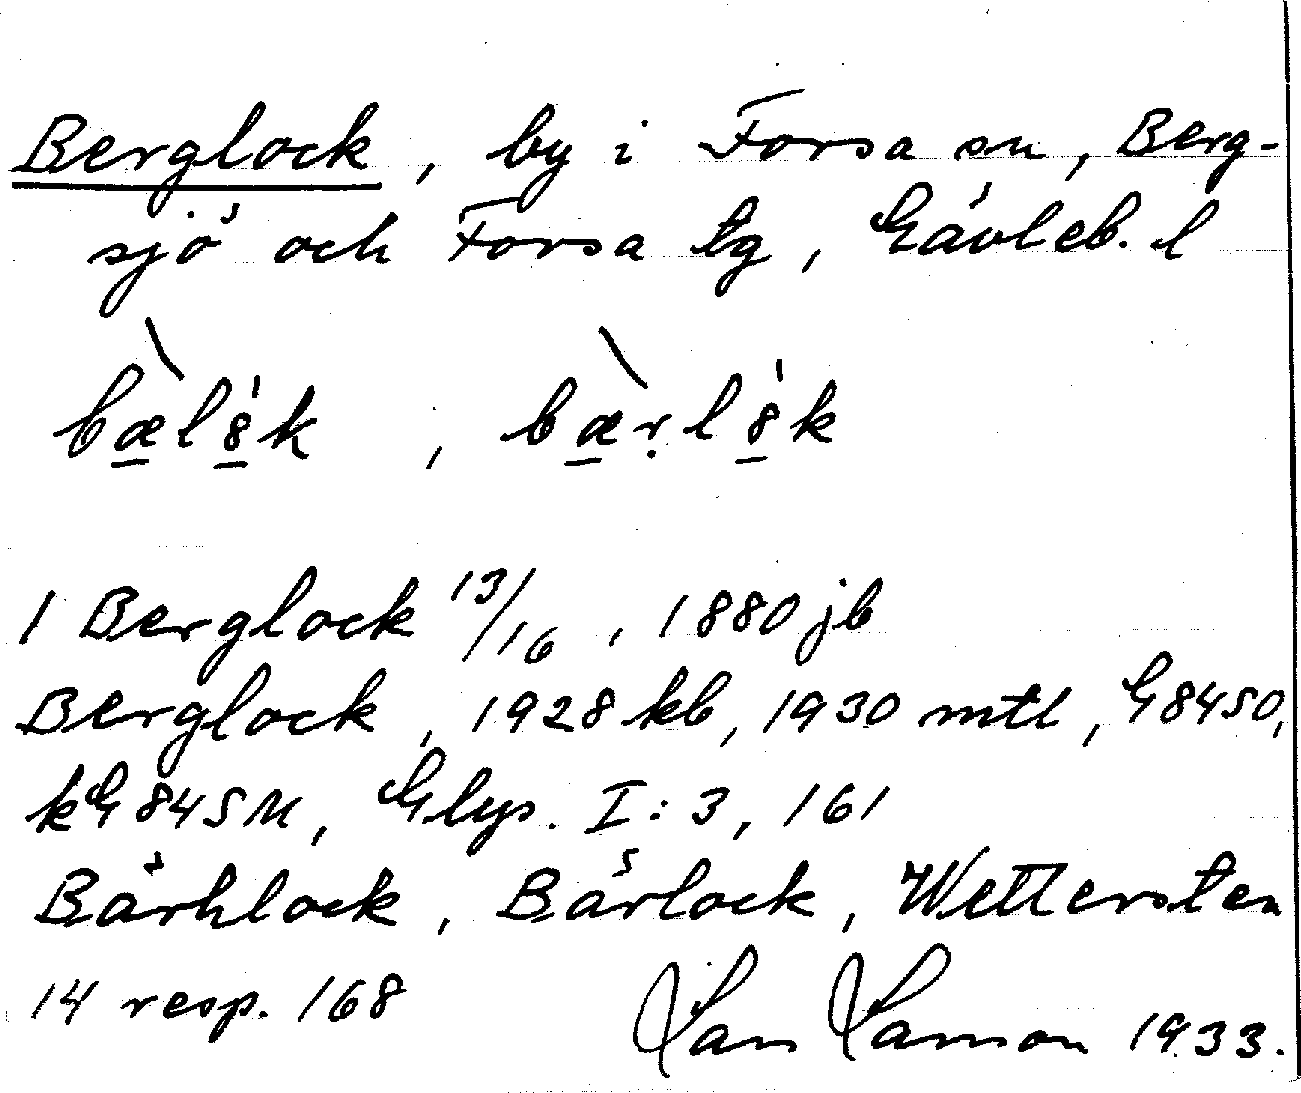 Berglock, by i Forsa sn, Berg-
sjö och Forsa tg, Gävleb. l
bæ̀l8̍k, bæ̀rl8̍k
1 Berglock 13/16, 1880 jb
Berglock, 1928 kb, 1930 mtl, G84SO,
kG84SM, Glys. I:3, 161
Bärhlock, Bärlock, Wettersten
14 resp. 168
1933.